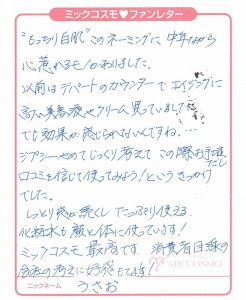 ミックコスモ♥ファンレター
"もっちり白肌"このネーミングに 中年ながら
心惹れるモノがありました。
以前はデパートのカウンターで エイジングに
高い美容液やクリーム買っていました
でも効果が感じられないんですね…
シブラーやめてじっくり考えて この際お手頃だし
口コミを信じて使ってみよう！という きっかけ
でした。
しっとり感が無くし たっぷり使える
化粧水も顔と体に使っています！
ミックコスモ 最高です 消費者目線の
会社の考えに好感もてます！
MICCOSMO
ニックネーム うさお